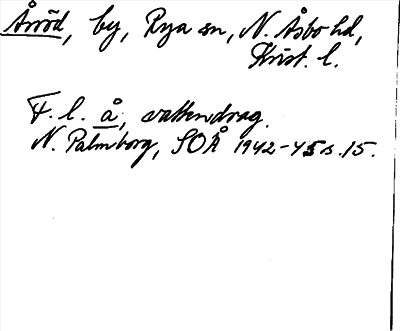 Åröd, by, Rya sn, N. Åsbo hd,
Krist. l.
F. l. å, vattendrag.
N. Palmborg, SOÅ 1942-45 s. 15.